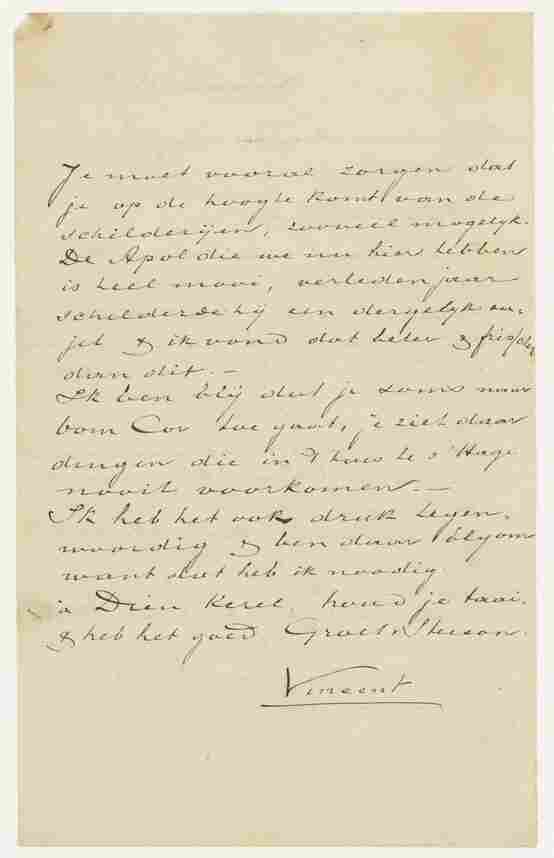 Je moet vooral zorgen dat
je op de hoogte komt van de
schilderijen, zooveel mogelyk.
De Apol die we nu hier hebben
is heel mooi, verleden jaar
schilderde hij een dergelyk su,
jet & ik vond dat beter & frisscher
dan dit. –
Ik ben blij dat je soms naar
oom Cor toe gaat, je ziet daar
dingen die in 't huis te s'Hage
nooit voorkomen. –
Ik heb het ook druk tegen,
woordig & ben daar blij om
want dat heb ik noodig.
à Dieu kerel, houd je taai.
& heb het goed Groet
Vincent